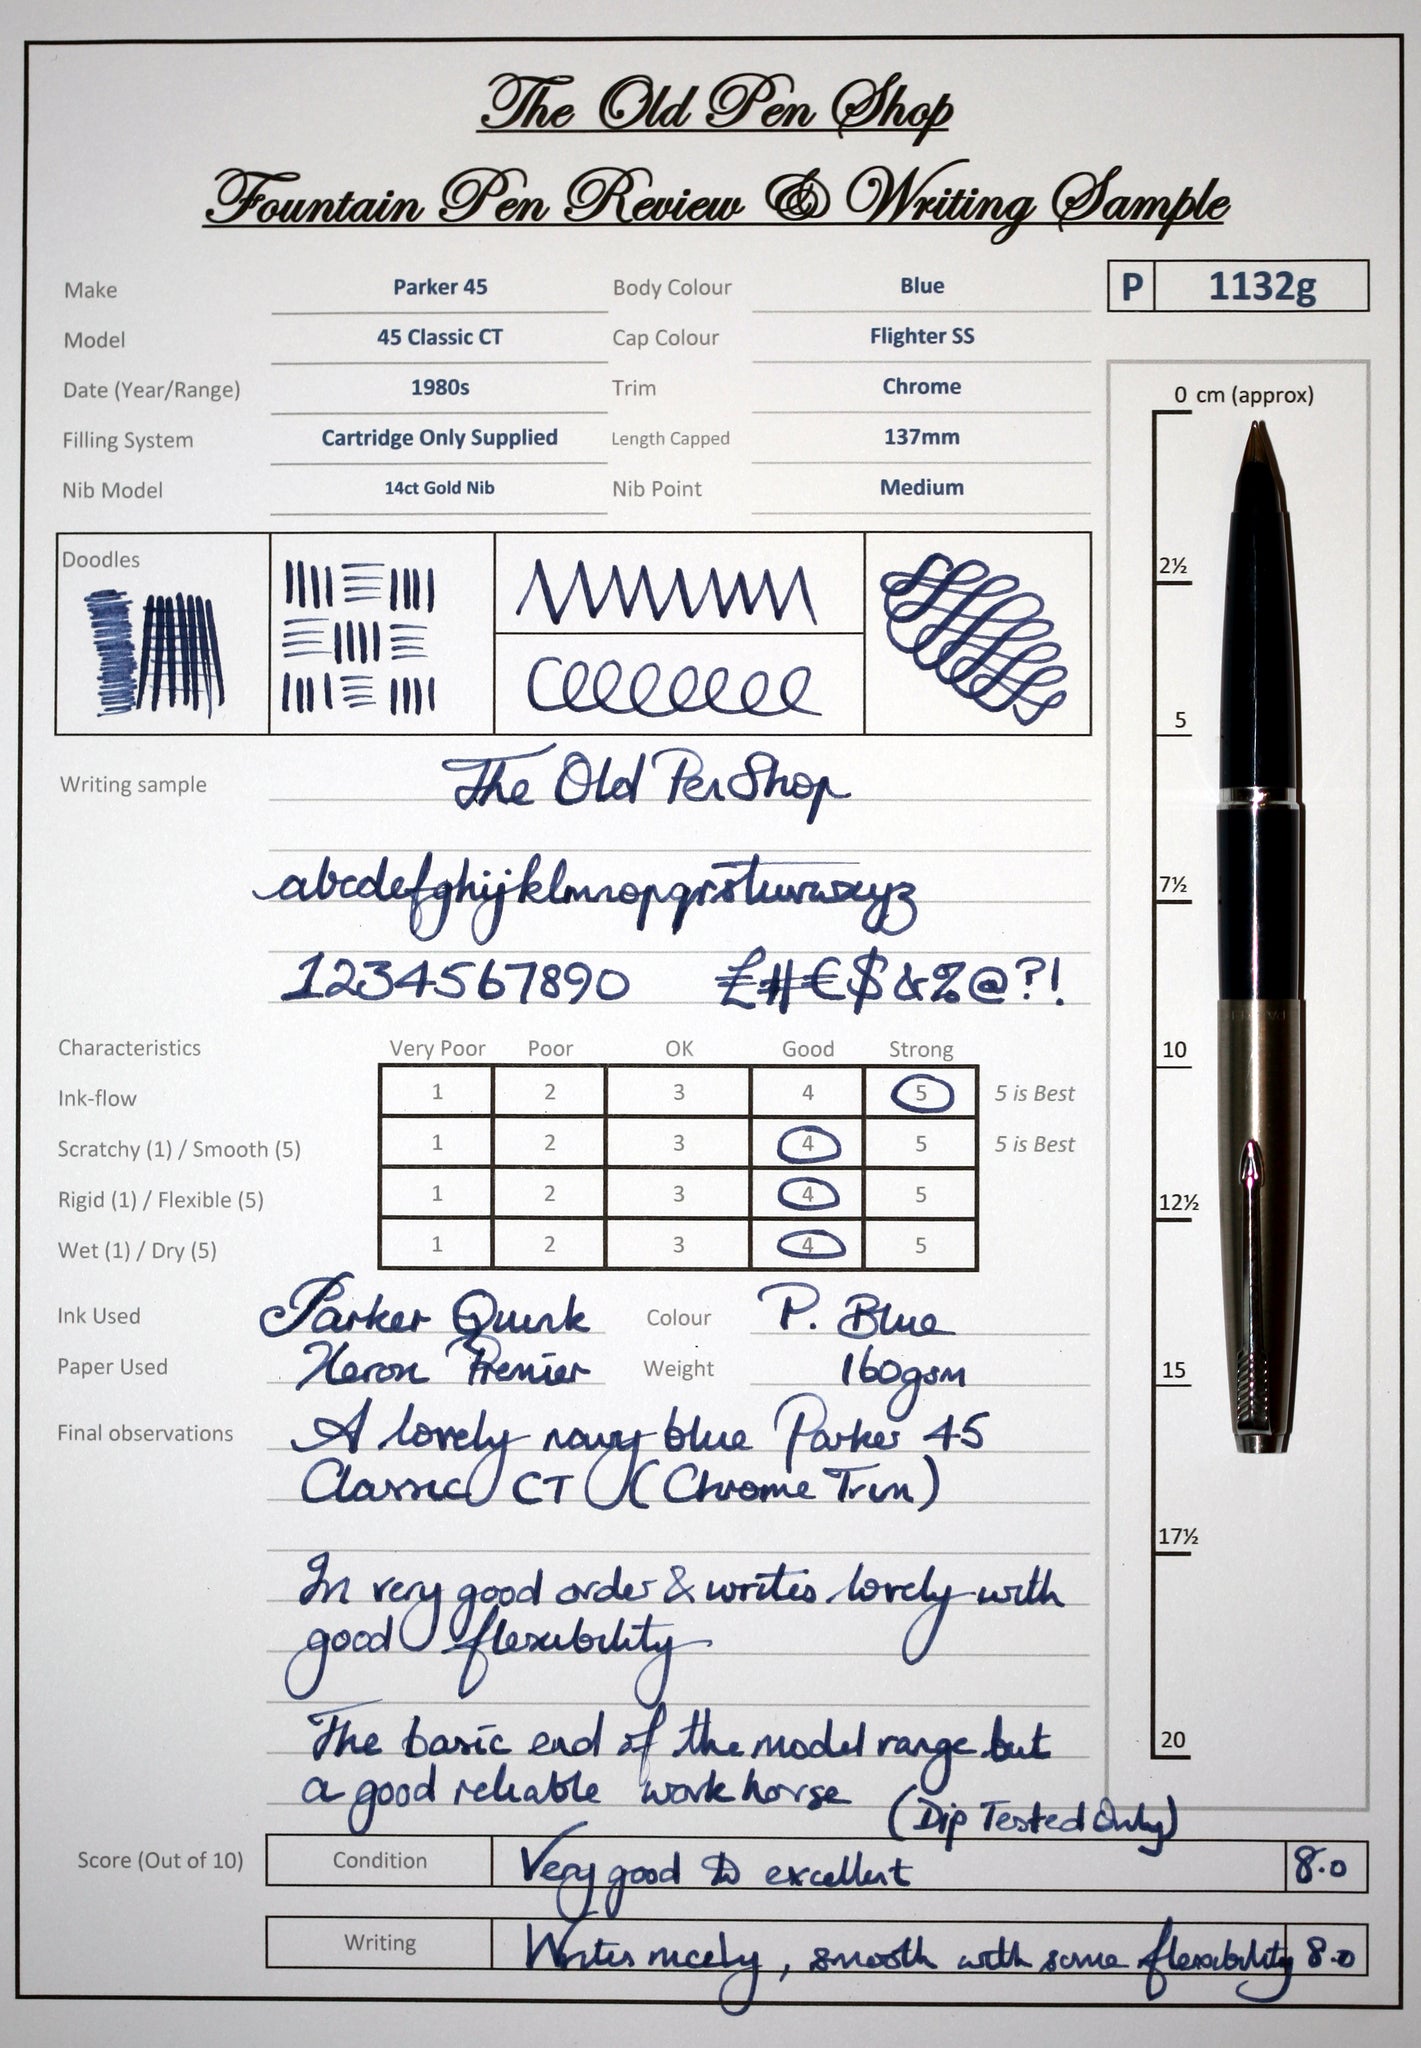 The Old Pen Shop
Fountain Pen Review & Writing Sample
Make Parker 45 Body Colour Blue P 1132g
Model 45 Classic CT Cap Colour Flighter SS
Date (Year/Range) 1980s Trim Chrome 0 cm (approx)
Filling System Cartridge Only Supplied Length Capped 137mm
Nib Model 14ct Gold Nib Nib Point Medium
Doodles
2½
5
Writing sample The Old Pen Shop
abcdefghijklmnopqrstuvwxyz
7½
1234567890 £#€$&%@?!
Characteristics Very Poor Poor OK Good Strong 10
Ink-flow 1 2 3 4 5 5 is Best
Scratchy (1) / Smooth (5) 1 2 3 4 5 5 is Best
Rigid (1) / Flexible (5) 1 2 3 4 5 12½
Wet (1) / Dry (5) 1 2 3 4 5
Ink Used Parker Quink Colour P. Blue
Paper Used Xerox Premier Weight 160gsm 15
Final observations A lovely navy blue Parker 45
Classic CT (Chrome Trim)
17½
In very good order & writes lovely with
good flexibility
The basic end of the model range but 20
a good reliable workhorse (Dip Tested Only)
Score (Out of 10) Condition Very good to excellent 8.0
Writing Writes nicely, smooth with some flexibility 8.0